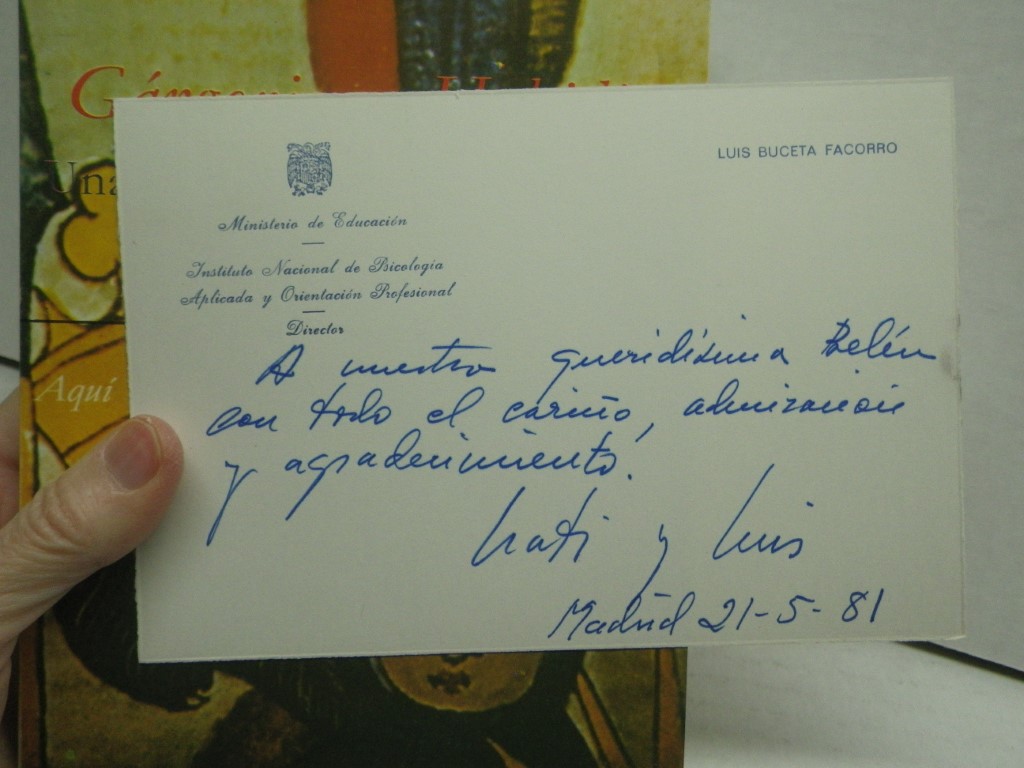 Una
Aquí
LUIS BUCETA FACORRO
Ministerio de Educación
Instituto Nacional de Psicología
Aplicada y Orientación Profesional
Director
A nuestra queridísima Belén
con todo el cariño, admiración
y agradecimiento.
y Luis
Madrid 21-5-81